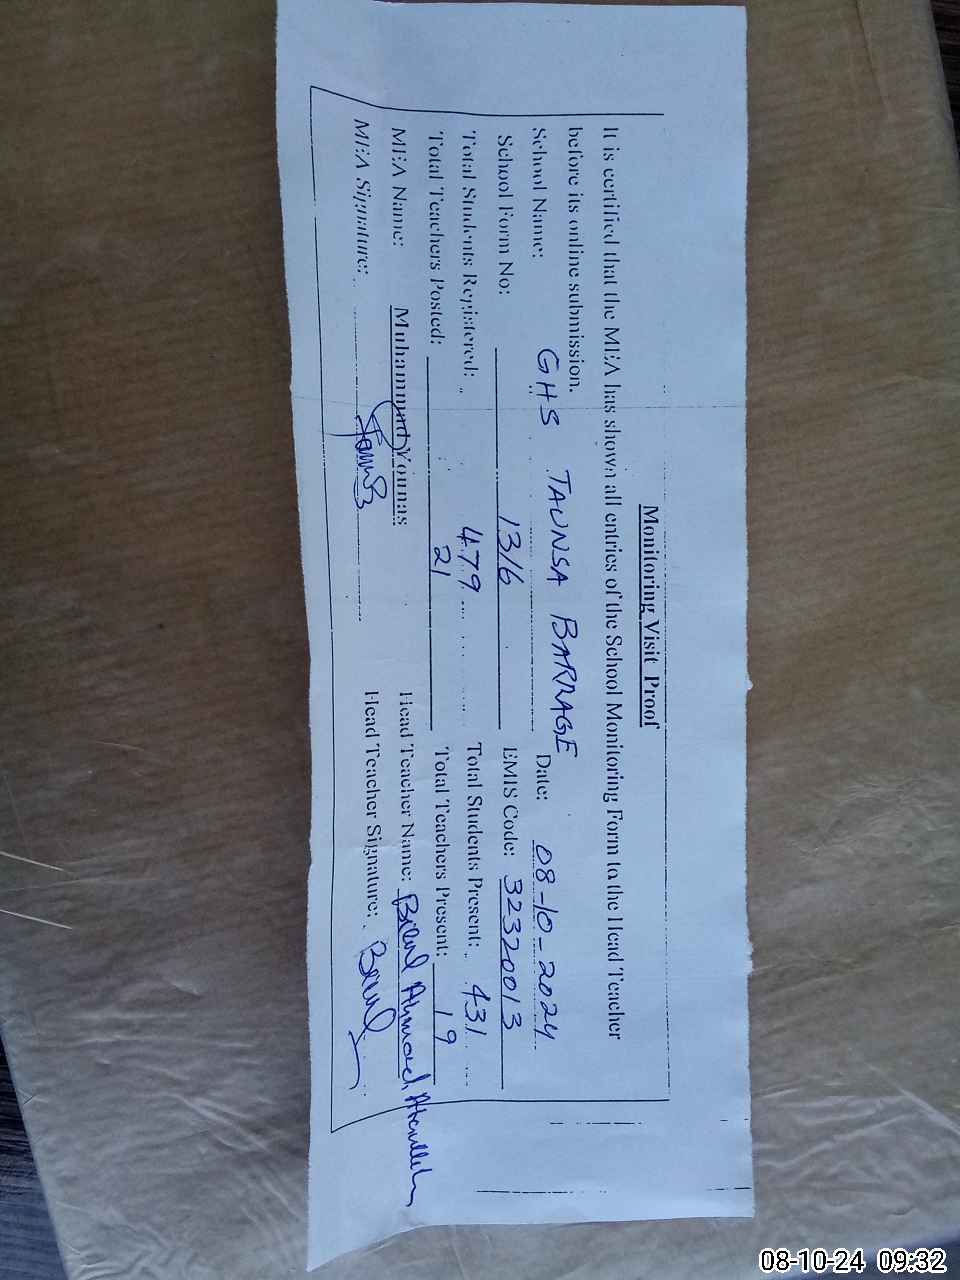 Monitoring Visit Proof
It is certified that the MEA has shown all entries of the School Monitoring Form to the Head Teacher
before its online submission.
School Name: GHS TAUNSA BARRAGE Date: 08-10-2024
School Form No: 1316 EMIS Code: 32320013
Total Students Registered: 479 Total Students Present: 431
Total Teachers Posted: 21 Total Teachers Present: 19
MEA Name: Muhammad Younas Head Teacher Name: Bilal Ahmad
MEA Signature: Head Teacher Signature:
08-10-24 09:32